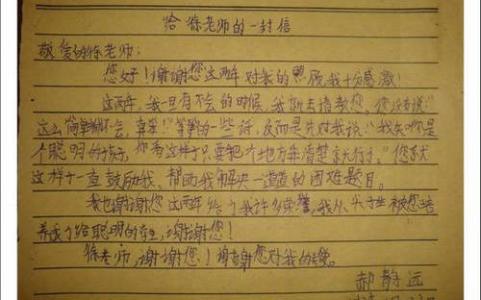 给徐老师的一封信
敬爱的徐老师：
您好！谢谢您这两年对我的照顾，我十分感激！
这两年，我一旦有不会的时候，我都去请教您，您没有说："
这么简单都不会，真笨！"等等的一些话，反而是对我说："我知你是
个聪明的孩子，你看这样子只要把这个地方弄清楚就行了。"您就
这样子一直鼓励我、帮助我解决一道道的困难题目。
我也谢谢您这两年给了我许多荣誉，我从被您培
养成了个聪明的，谢谢您！
徐老师，谢谢您！谢谢您对我的
郝静远